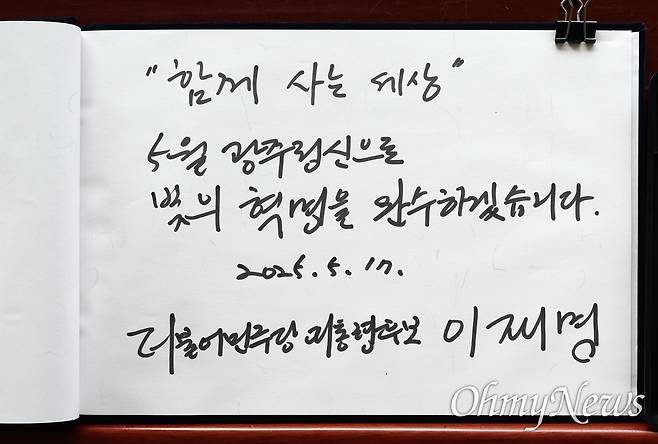 "함께 사는 세상"
5월 광주정신으로
빛의 혁명을 완수하겠습니다.
2025. 5. 17.
더불어민주당 대통령후보 이재명
OhmyNews